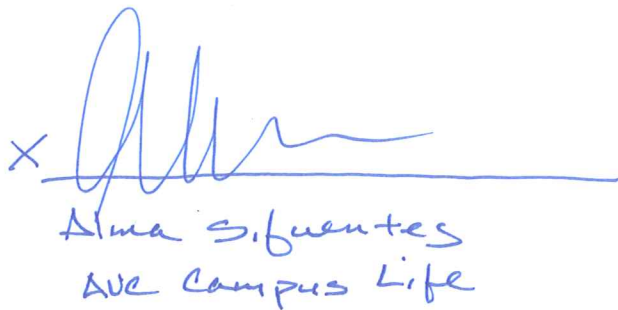 X
Alma Sifuentes
AVC Campus Life